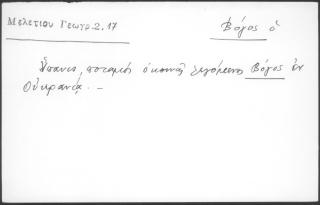 Μελετίου Γεωγρ. 2, 17
Βόγος ὁ
Ὕπανις, ποταμὸς ὁ κοινῶς λεγόμενος Βόγος ἐν
Οὐκρανίᾳ. —